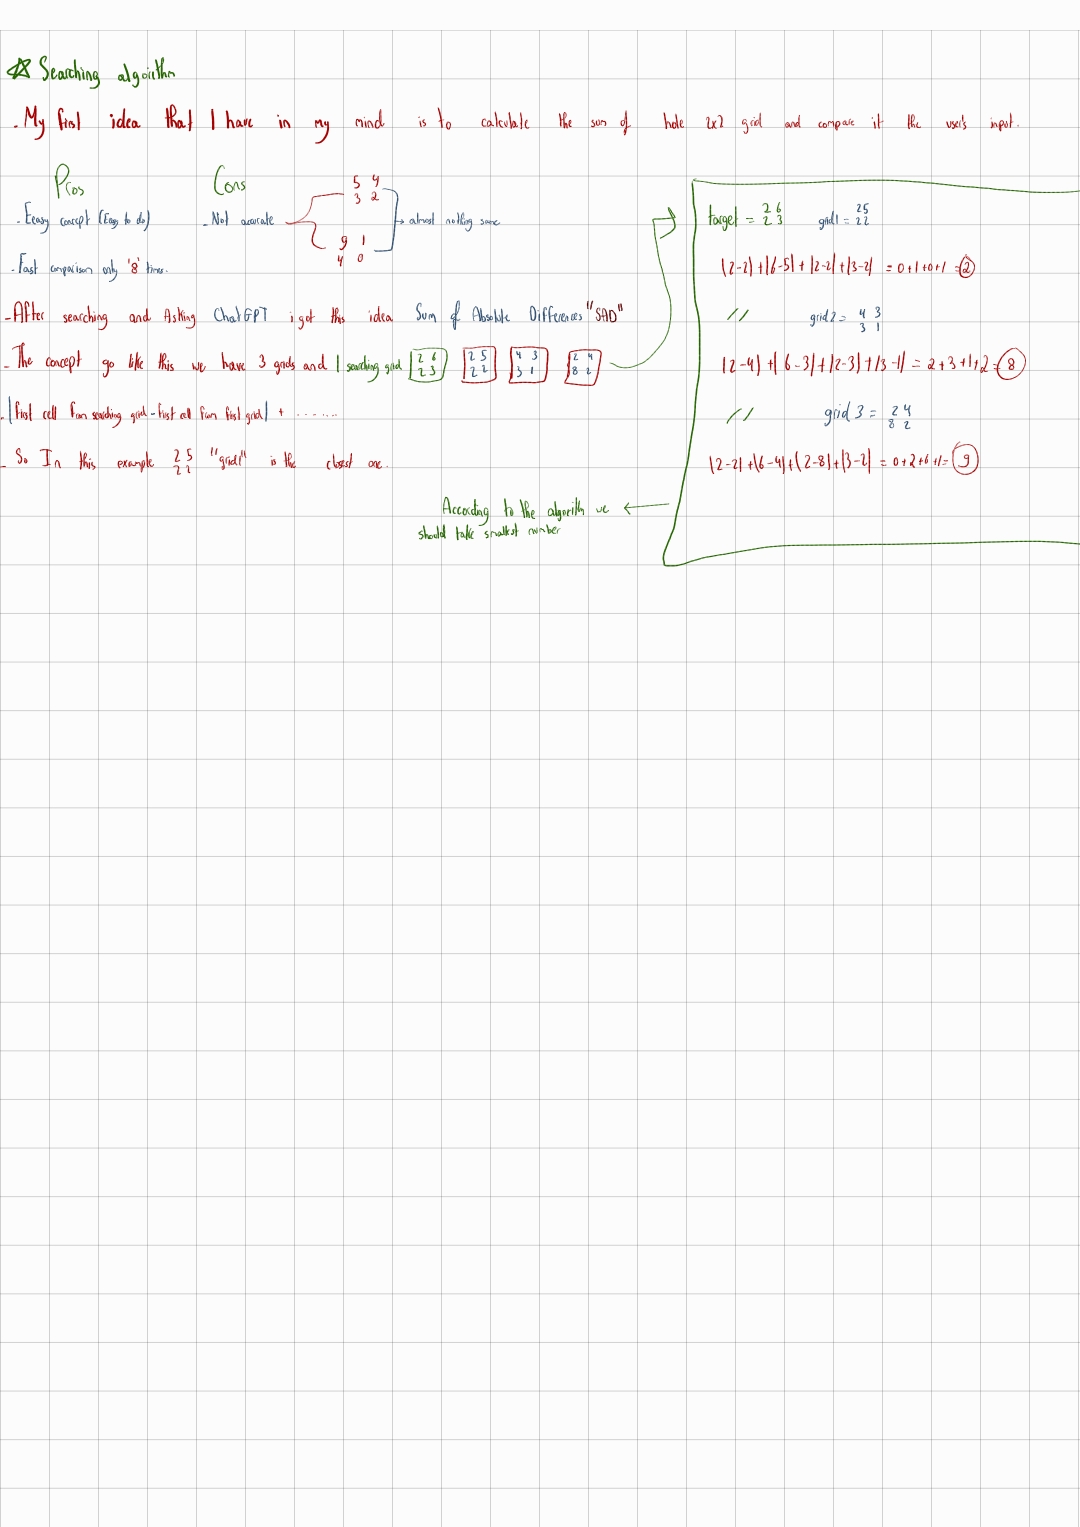 Searching algorithm
- My first idea that I have in my mind is to calculate the sum of hole 2x2 grid and compare it the user's input.
Pros
Cons
- Eeasy concept (Easy to do)
- Fast comparison only '8' times.
- Not accurate
5 4
3 2
9 1
4 0
almost nothing same
- After searching and Asking ChatGPT i got this idea Sum of Absolute Differences "SAD"
- The concept go like this we have 3 grids and 1 searching grid
2 6
2 3
2 5
2 2
4 3
3 1
2 4
8 2
- |First cell from searching grid - First cell from first grid| + .......
- So In this example 2 5 "grid1" is the closest one.
2 2
target = 2 6
2 3
grid1 = 2 5
2 2
|2-2| + |6-5| + |2-2| + |3-2| = 0+1+0+1 = 2
//
grid2 = 4 3
3 1
|2-4| + |6-3| + |2-3| + |3-1| = 2+3+1+2 = 8
//
grid3 = 2 4
8 2
|2-2| + |6-4| + |2-8| + |3-2| = 0+2+6+1 = 9
According to the algorith we
should take smallest number